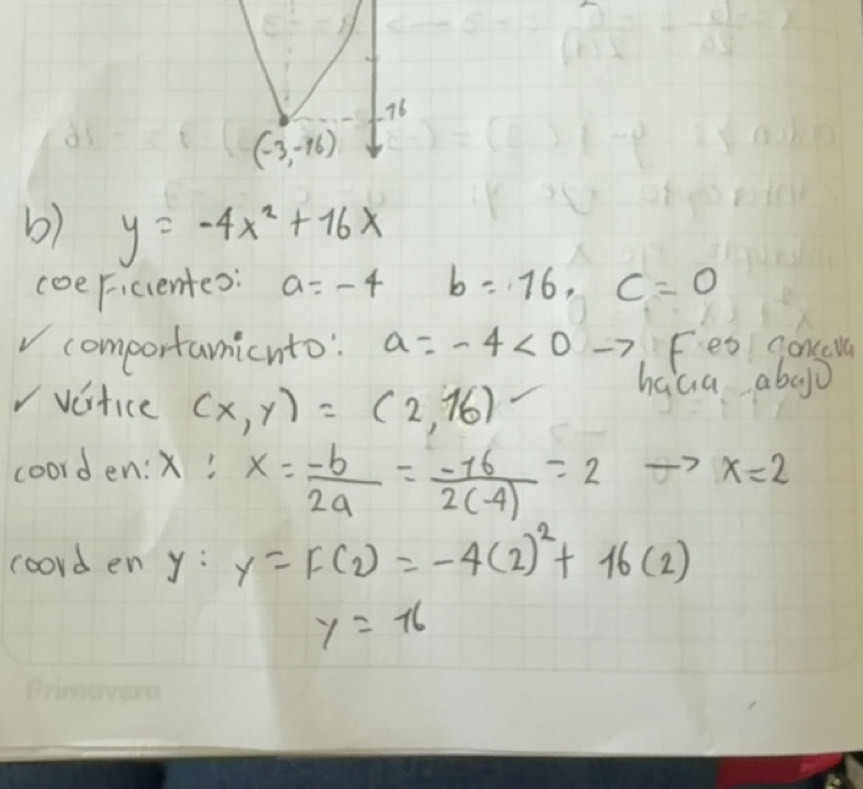 -16
(-3,-16)
b) y = -4x² + 16x
coeficientes: a = -4 b = 16, C = 0
✓ comportamiento: a = -4 < 0 → F es concava
hacia abajo
✓ vértice (x, y) = (2, 16) ✓
coord en: x : x = -b/2a = -16/2(-4) = 2 → x = 2
coord en y: y = F(2) = -4(2)² + 16(2)
y = 16
Primavera